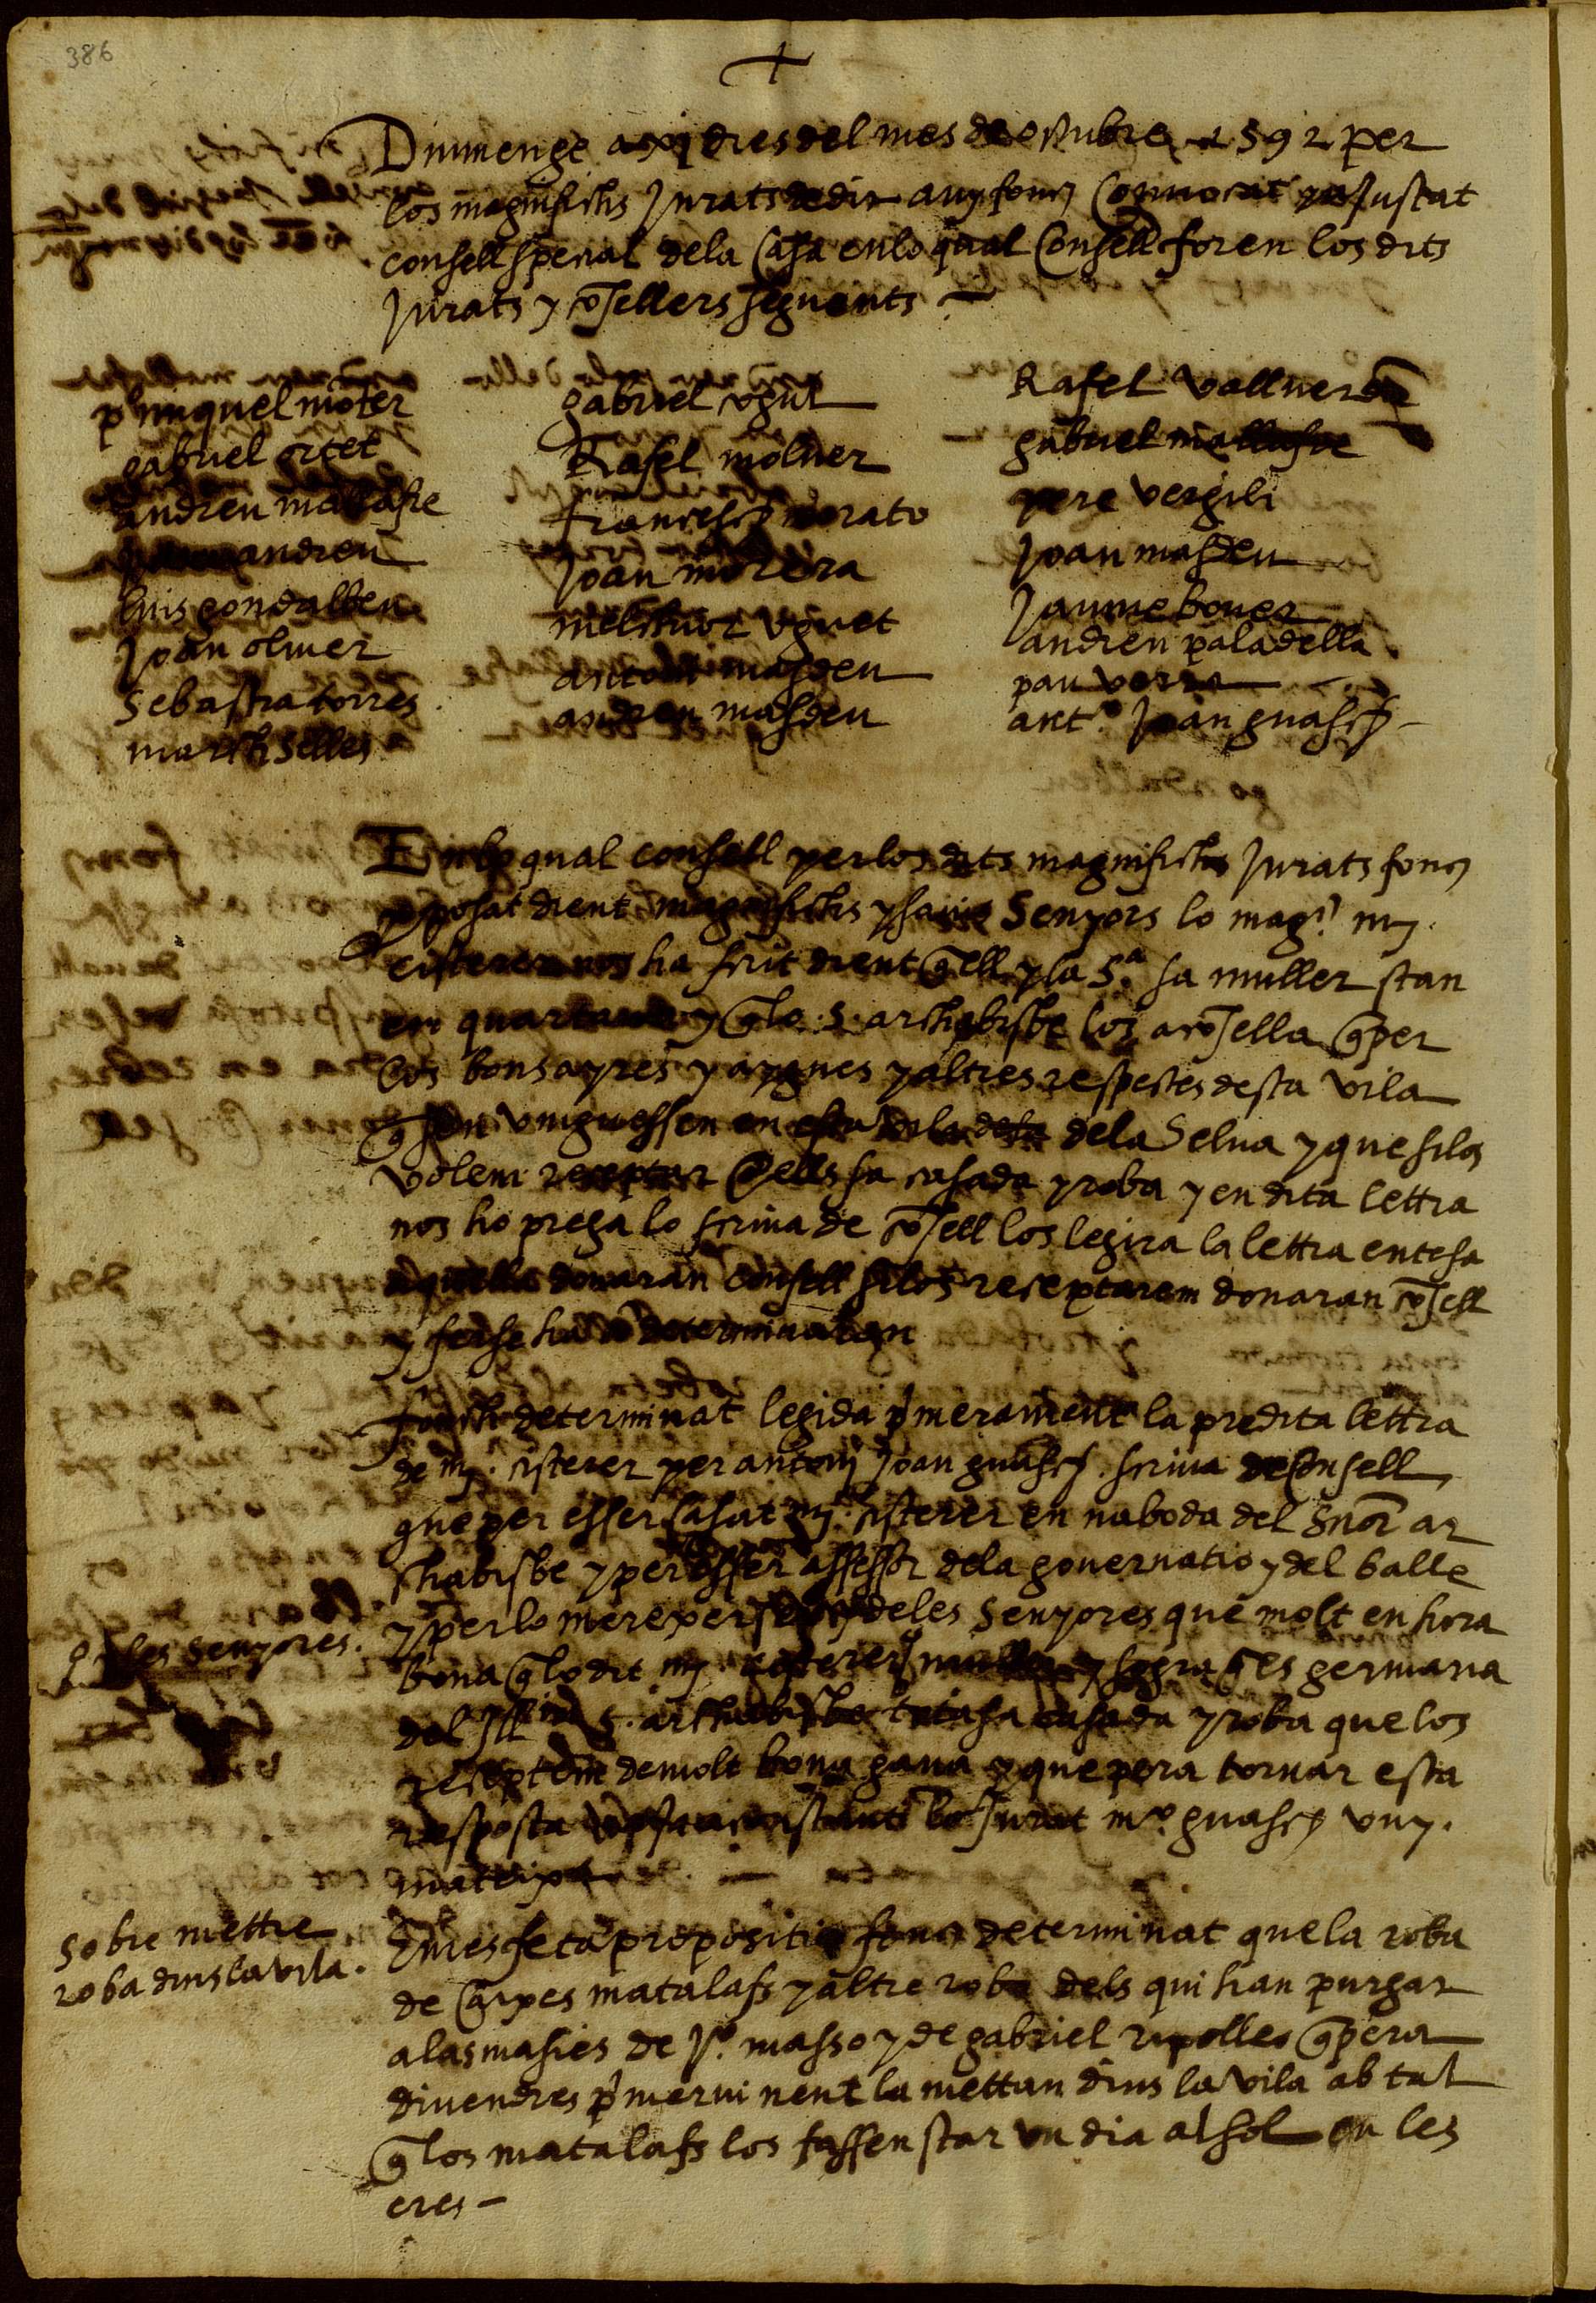 386
+
Diumenge a xj dies del mes de octubre 1592 per
los magnifichs Jurats de dit any fonch Convocat y ajustat
consell special dela Casa en lo qual Consell foren los dits
Jurats y cõsellers seguents —
p miquel mõter
gabriel ortet
andreu mallafre
andreu
luis gondalbeu
Joan oliuer
sebastia torres
march selles
gabriel ugul
Rafel moliner
francesch morato
Joan morera
melchior uguet
antoni masdeu
andreu masdeu
Rafel vallverdu
gabriel mallafre
pere vergili
Joan masdeu
Jaume bover
andreu paladella
pau
antº Joan guasch —
En lo qual consell per los dits magnifichs Jurats fonch
pposat dient magnifichs y savis Senyors lo magch mj.
cisterer nos ha scrit dient q̃ ell y la S.ª sa muller stan
en y q̃ lo .S. archabisbe los acõsella q̃ per
los bons ayres y aygues y altres respectes desta vila
q̃ sen vinguessen en dela Selva y que si los
volem receptar ells sa casada y roba y en dita lettra
nos ho prega lo scriva de cõsell los legira la lettra entesa
aquella donaran consell si los receptarem donaran cõsell
y ferse ha determinatan
fonch determinat legida pmerament la predita lettra
de mj. cisterer per antonj Joan guasch scriva de Consell
que per esser casat mj. cisterer en naboda del Snor ar
chabisbe y per esser assessor dela governatio y del balle
y per lo merexer deles senyores que molt en hora
bona q̃ lo dit mj. cisterer muller y sogra q̃ es germana
del Illm S. archabisbe tota sa casada y roba que los
receptem de molt bona gana y que pera tornar esta
resposta lo Jurat mº guasch vuy.
mateix
e les senyores.
Sobre mettre
roba dins la vila.
E mes feta propositio fonch determinat que la roba
de carpes matalafs y altre roba dels qui han purgar
a las masies de Jº. masso y de gabriel ripolles q̃ pera
divendres pmer vinent la mettan dins la vila ab tal
q̃ los matalafs los fassen star un dia al sol en les
eres —